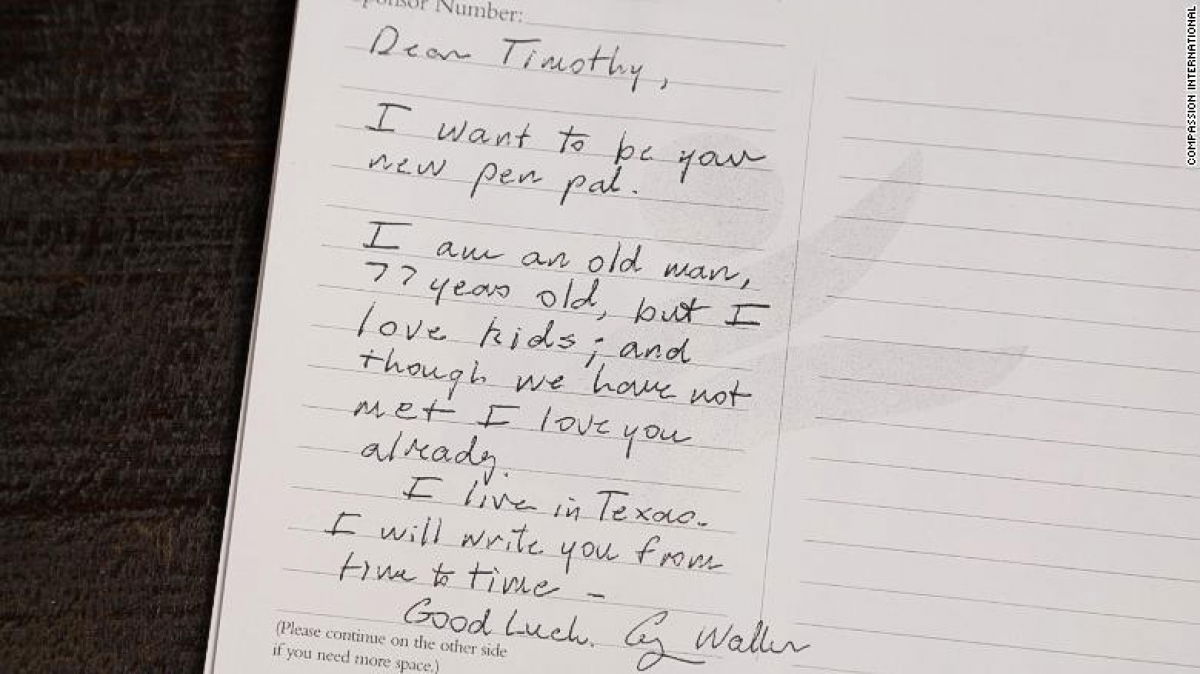 Sponsor Number:
Dear Timothy,
I want to be your
new pen pal.
I am an old man,
77 years old, but I
love kids; and
though we have not
met I love you
already.
I live in Texas.
I will write you from
time to time -
Good Luck. Waller
(Please continue on the other side
if you need more space.)
COMPASSION INTERNATIONAL